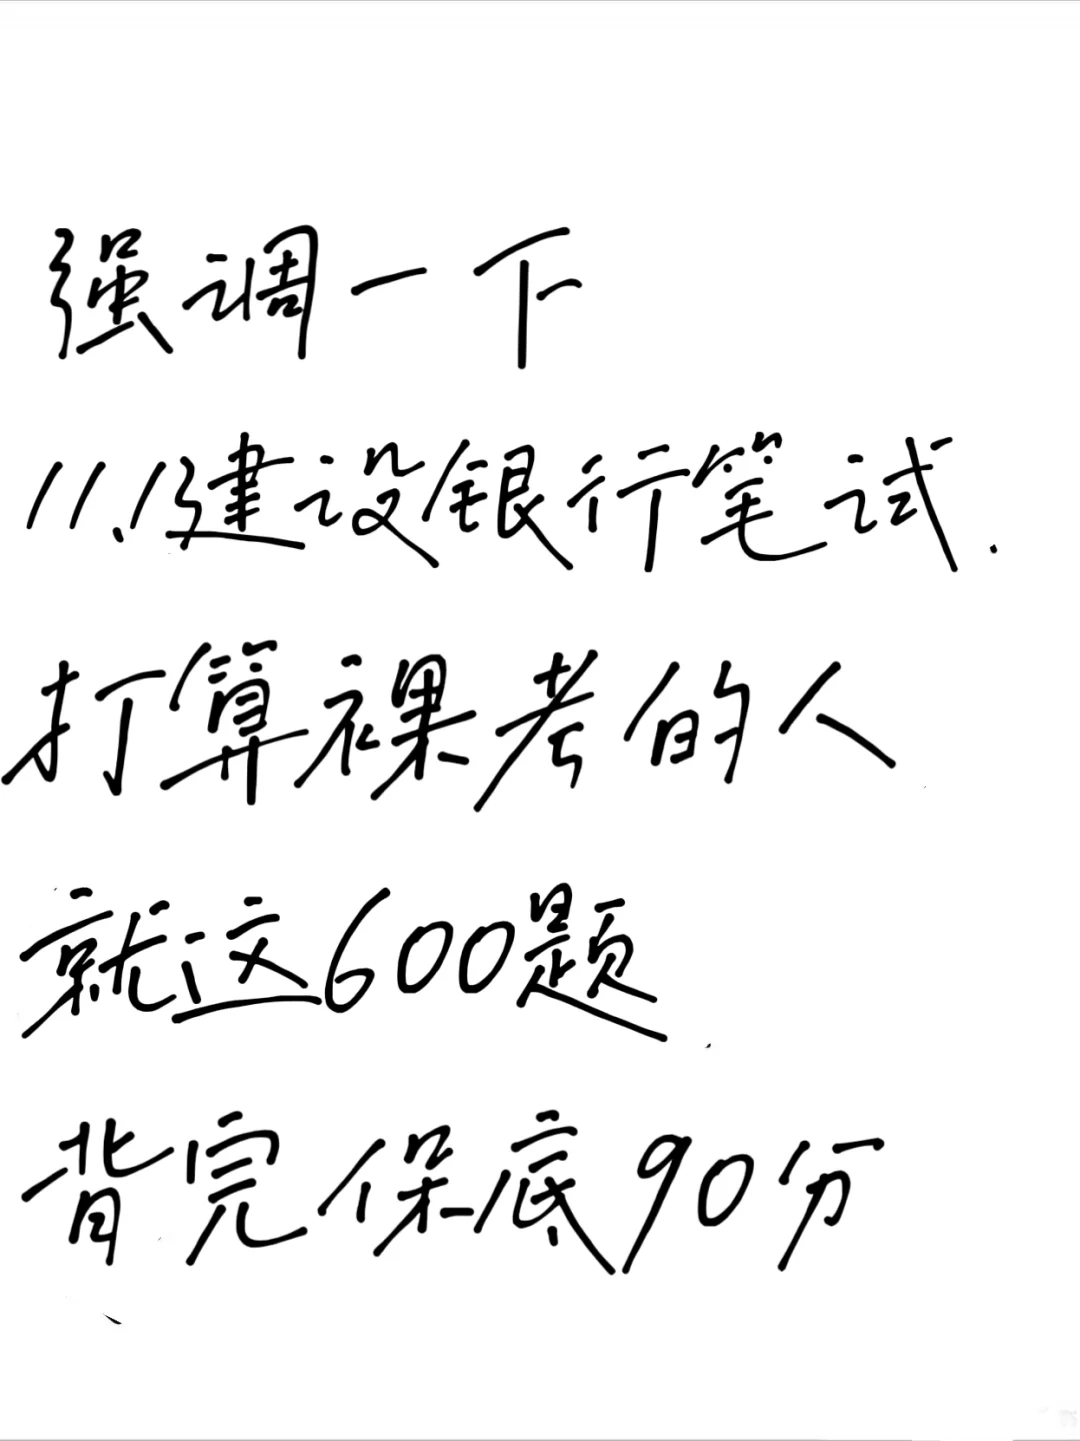 强调一下
11.1建设银行笔试.
打算裸考的人
就这600题
背完保底90分